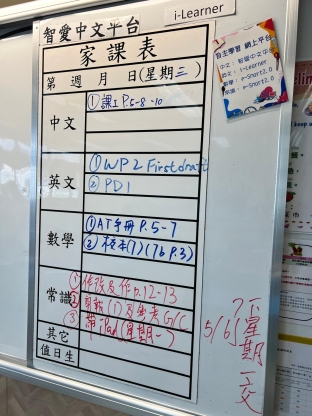 i-Learner
智愛中文平台
家課表
第 週 月 日(星期三)
自主學習 網上平台
中文：智愛中文平台
英文：i-Learner
數學：e-Smart2.0
常識：e-Smart2.0
中文
①課工P.5-8-10
英文
①WP2 First draft
②PD1
數學
①AT手冊P.5-7
②校本(7)(7b P.3)
常識
①修改及作p.12-13
②
③帶iPad(星期一)
其它
值日生
5/6
下星期一交